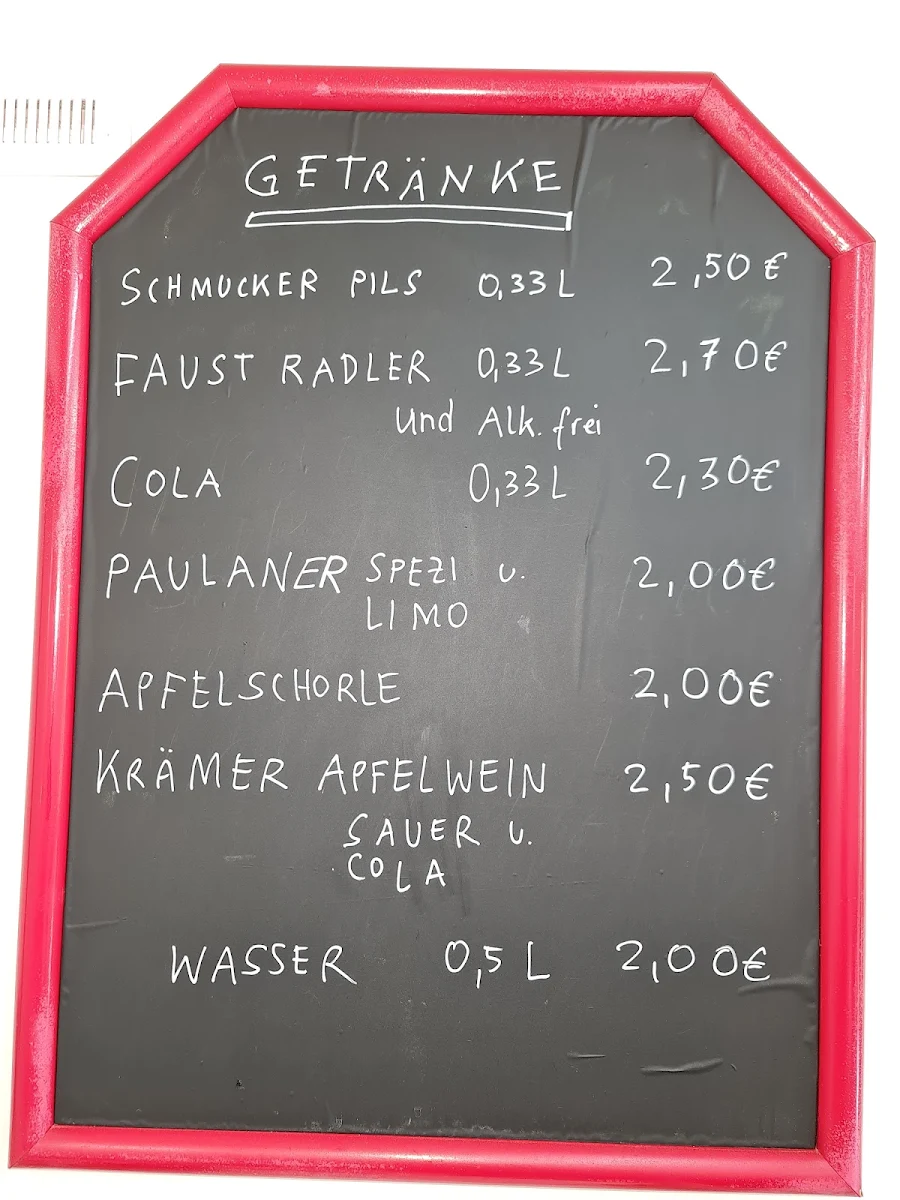 GETRÄNKE
SCHMUCKER PILS 0,33 L 2,50 €
FAUST RADLER 0,33 L 2,70 €
und Alk. frei
COLA 0,33 L 2,30 €
PAULANER SPEZI u. 2,00 €
LIMO
APFELSCHORLE 2,00 €
KRÄMER APFELWEIN 2,50 €
SAUER u.
COLA
WASSER 0,5 L 2,00 €